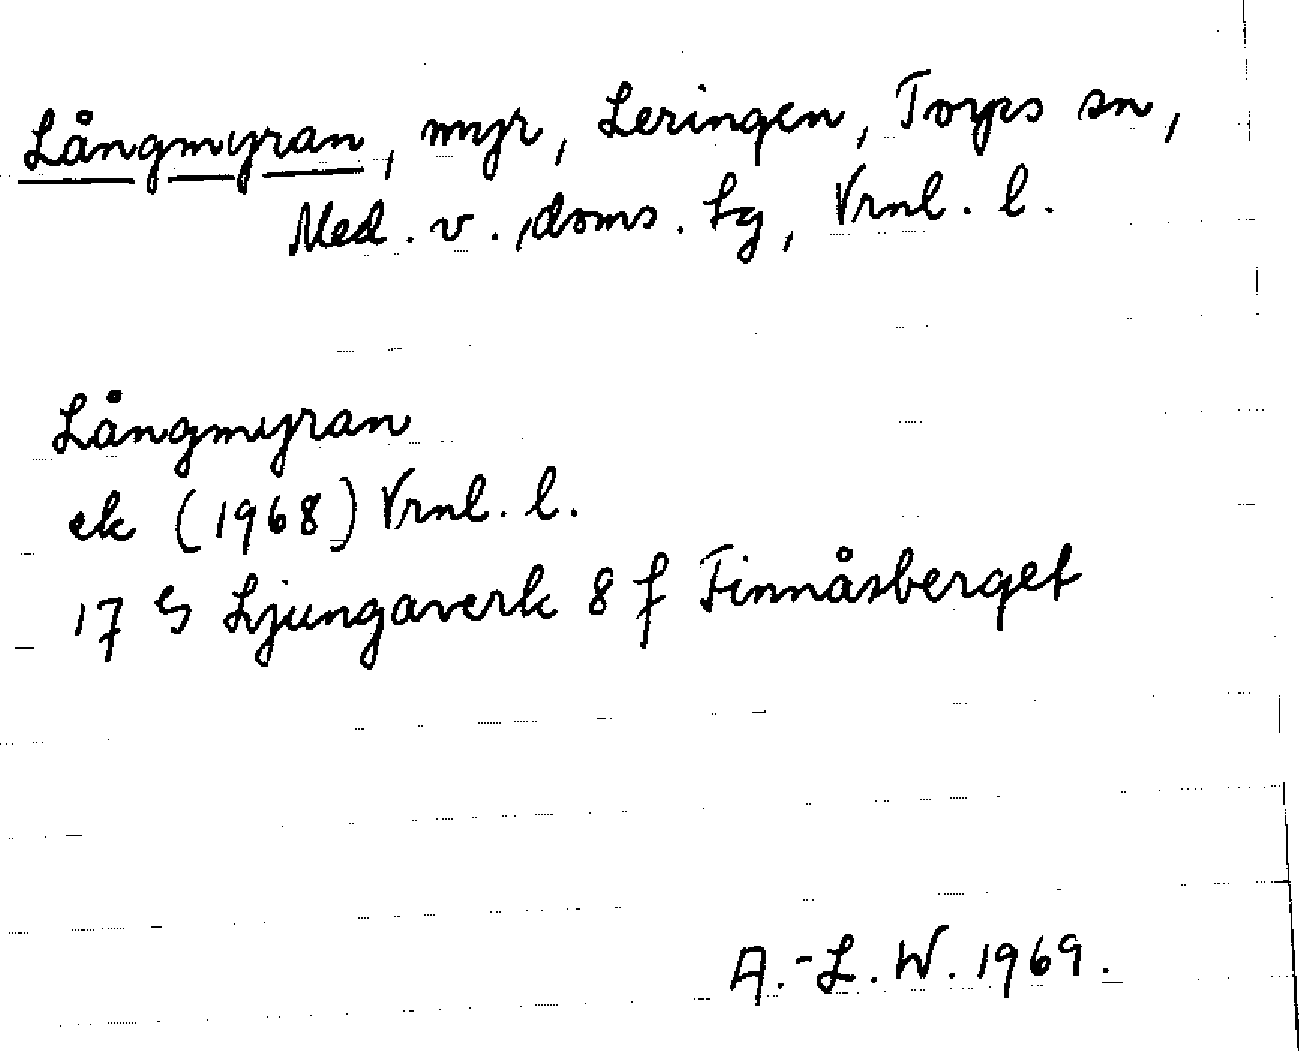 Långmyran, myr, Leringen, Torps sn,
Med. v. doms. hg, Vrnl. l.
Långmyran
ek (1968) Vrnl. l.
17 G Ljungaverk 8 f Finnåsberget
A.-L. W. 1969.